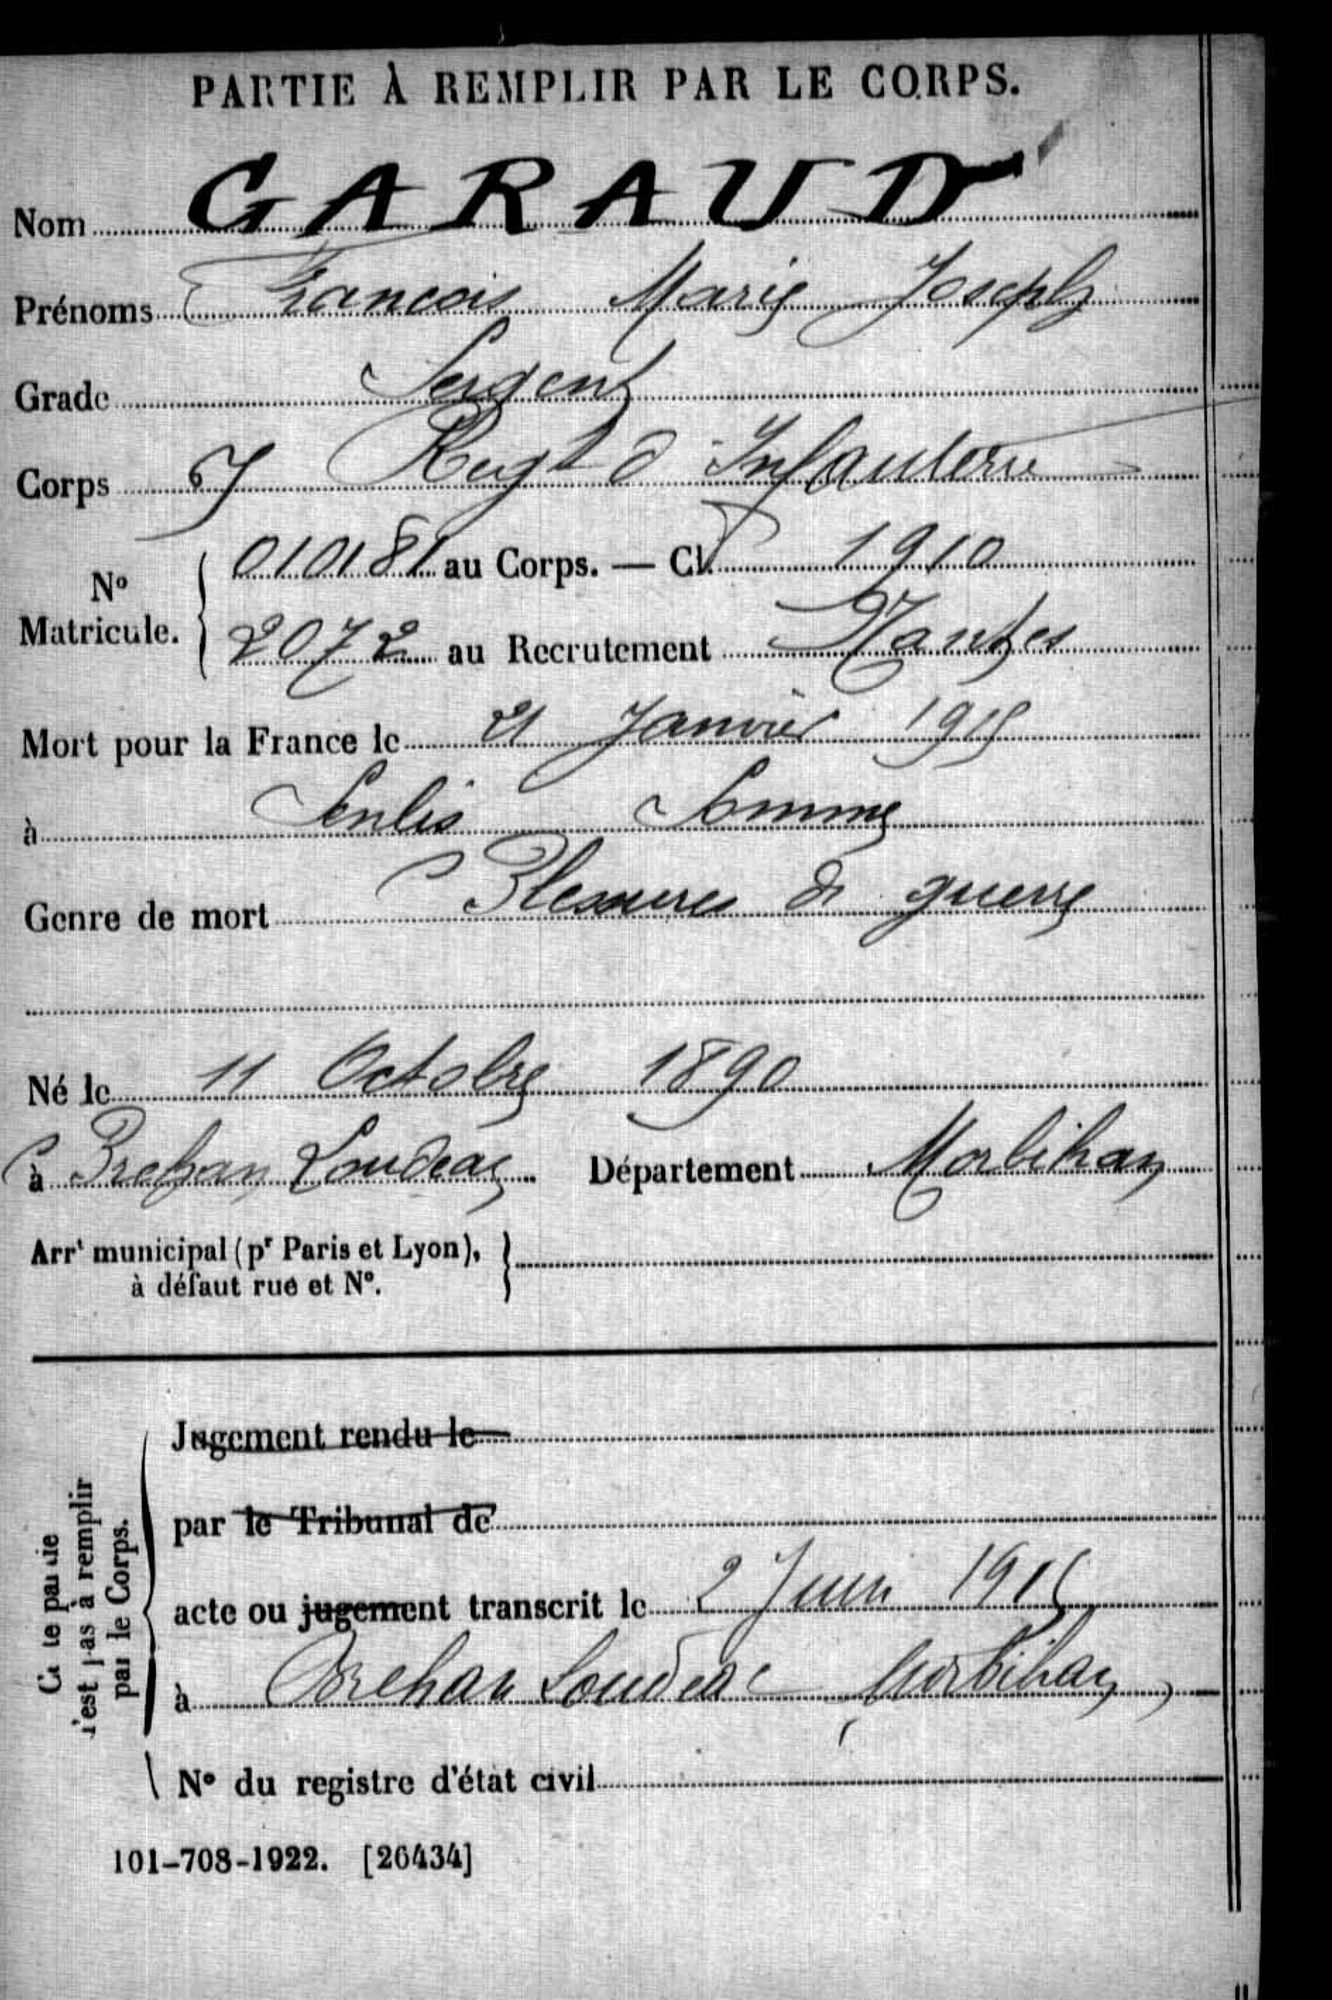 PARTIE À REMPLIR PAR LE CORPS.
Nom GARAUD
Prénoms Francois Marie Joseph
Grade Sergent
Corps Regt d Infanterie
N° Matricule. 010181 au Corps. — Cl. 1910
2072 au Recrutement Nantes
Mort pour la France le 21 Janvier 1915
à Senlis Somme
Genre de mort Blessures de guerre
Né le 11 Octobre 1890
à Brehan Loudeac Département Morbihan
Arrt municipal (pr Paris et Lyon),
à défaut rue et N°.
Jugement rendu le
par le Tribunal de
acte ou jugement transcrit le 2 Juin
à Brehan Loudeac Morbihan
N° du registre d'état civil
Cette partie
n'est pas à remplir
par le Corps.
101-708-1922. [26434]